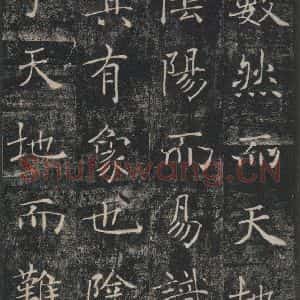 數然而天地
陰陽而易識
其有象也陰
乎天地而難
Shufawang.CN